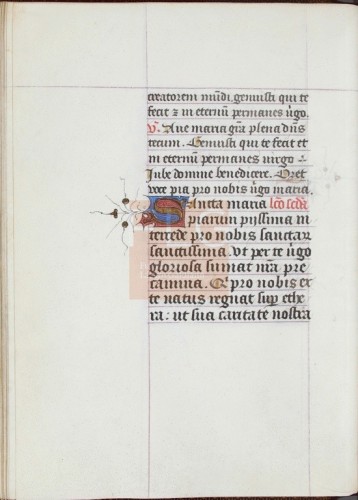 creatorem mūdi genuisti qui te
fecit ⁊ in eternū permanes ṽgo.
V. Aue maria grā plena dñs
tecum. Genuisti qui te fecit et
in eternū permanes virgo
Iube domine benedicere. Oret
voce pia pro nobis ṽgo maria.
Sancta maria lcō scda
piarum piissima in
tercede pro nobis sanctar
sanctissima. Ut per te ṽgo
gloriosa sumat nrā pre
camina. Qi pro nobis ex
te natus regnat sup ethe
ra: ut sua caritate nostra